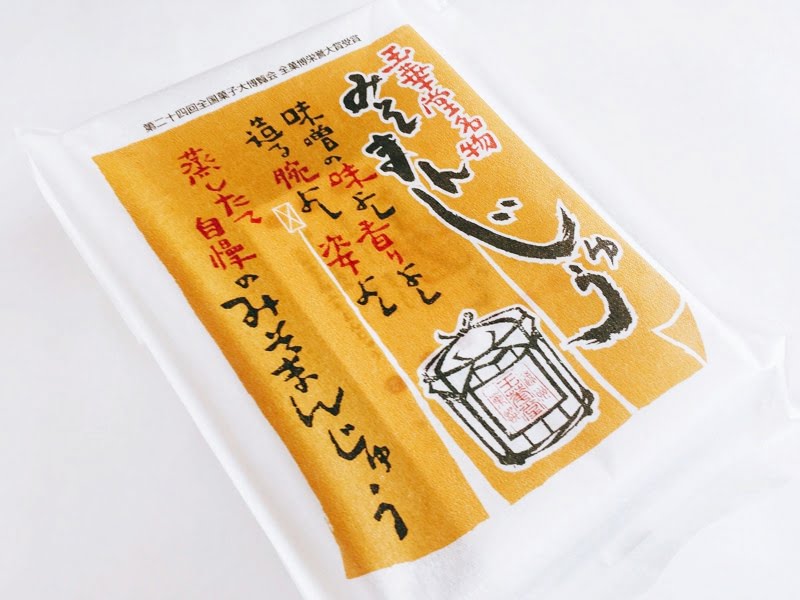 第二十四回全国菓子大博覧会 全菓博栄誉大賞受賞
玉華堂名物
みそまんじゅう
味噌の味よし香りよし
造る腕よし姿よし
蒸したて自慢のみそまんじゅう
玉華堂